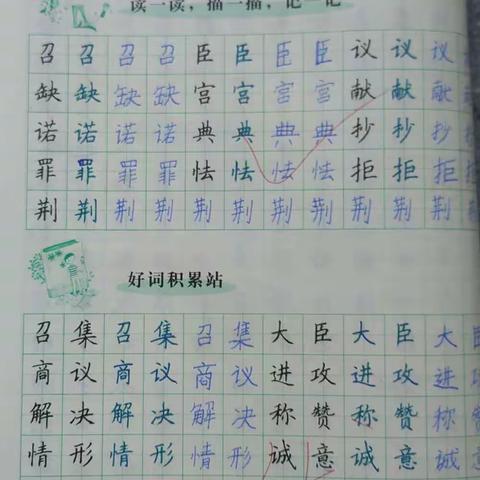 读一读，描一描，记一记
召召召召臣臣臣臣议议议
缺缺缺缺宫宫宫宫献献献
诺诺诺诺典典典典抄抄抄
罪罪罪罪怯怯怯怯拒拒拒
荆荆荆荆荆荆荆荆荆荆荆荆
好词积累站
召集召集召集大臣大臣大臣
商议商议商议进攻进攻进攻
解决解决解决称赞称赞称赞
情形情形情形诚意诚意诚意